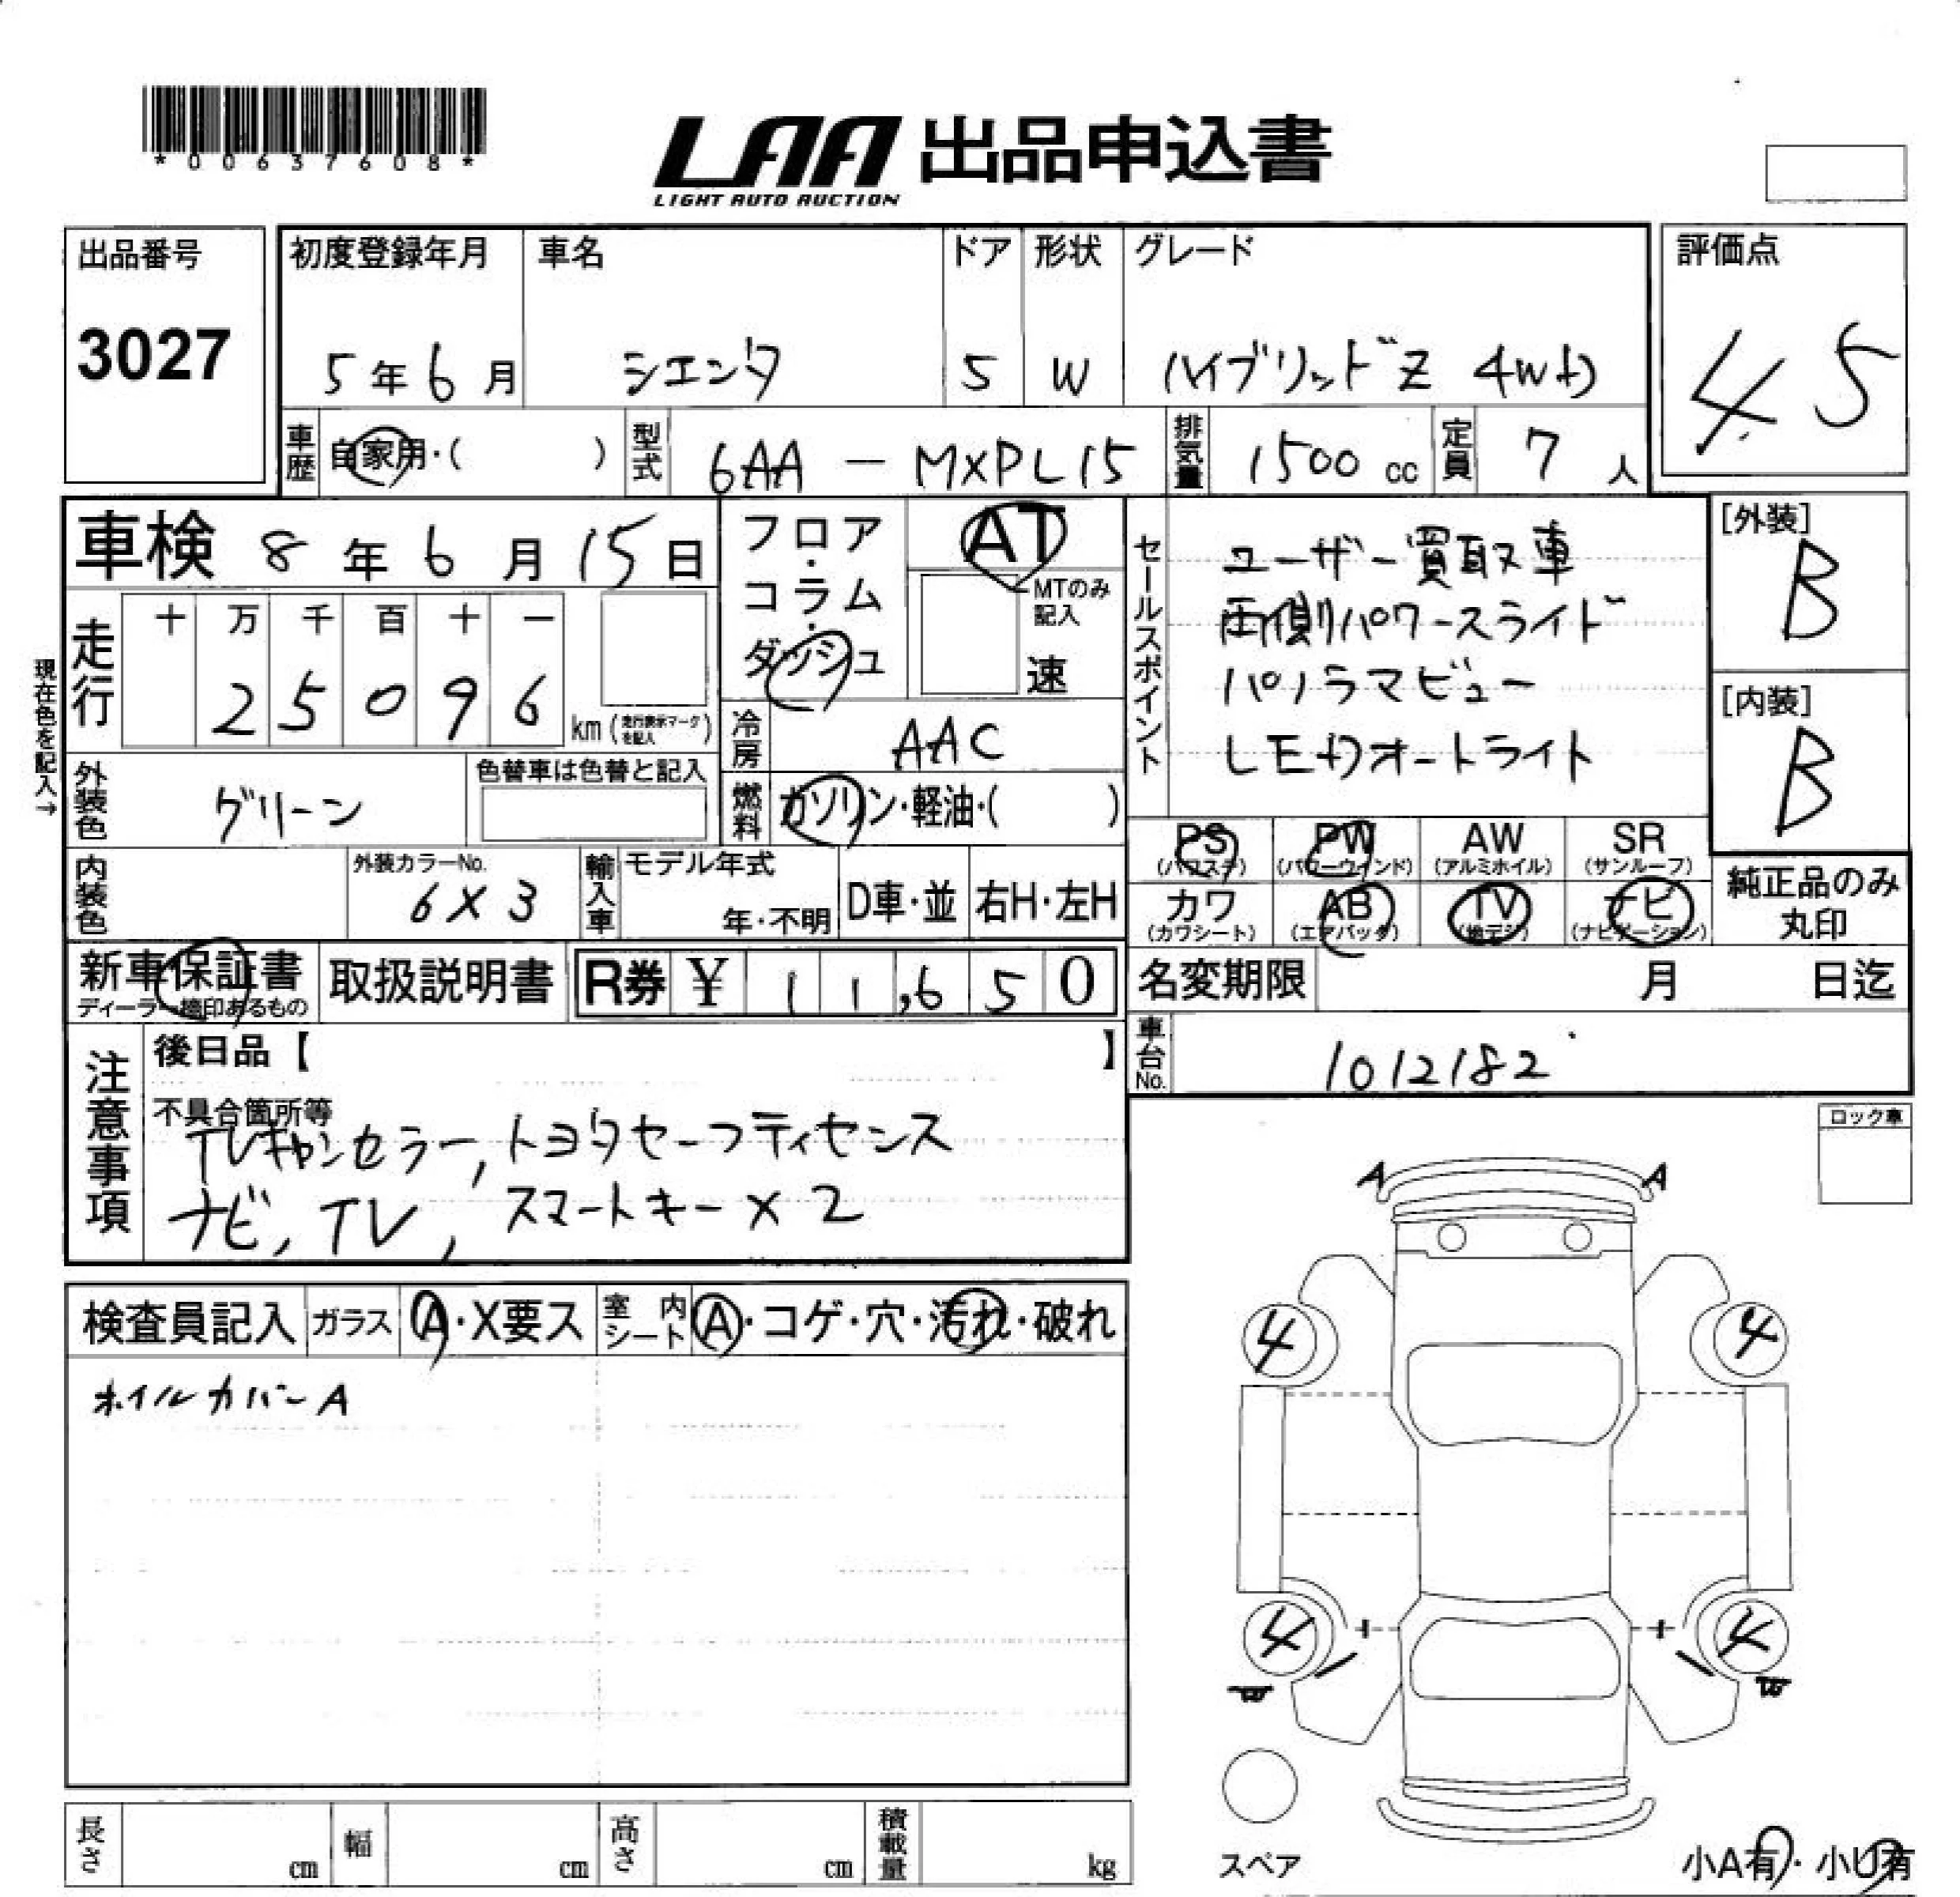 *00637608*
LAA 出品申込書
LIGHT AUTO AUCTION
出品番号
3027
初度登録年月 車名 ドア 形状 グレード
5年6月 シエンタ 5 W ハイブリッドZ 4WD
評価点
4.5
車歴 自家用・( ) 型式 6AA-MXPL15 排気量 1500cc 定員 7人
車検 8年6月15日
現在色を記入→
走行 十 万 千 百 十 一
2 5 0 9 6 km (走行表示マークを記入)
外装色 グリーン 色替車は色替と記入
内装色 外装カラーNo. 6X3
輸入車 モデル年式 年・不明 D車・並 右H・左H
フロア・コラム・ダッシュ
AT
MTのみ記入
速
冷房 AAC
燃料 ガソリン・軽油・( )
セールスポイント
ユーザー買取車
両側パワースライド
パノラマビュー
LEDオートライト
[外装]
B
[内装]
B
PS (パワステ) PW (パワーウィンド) AW (アルミホイル) SR (サンルーフ)
カワ (カワシート) AB (エアバッグ) TV (地デジ) ナビ (ナビゲーション)
純正品のみ丸印
新車保証書 ディーラー捺印あるもの 取扱説明書 R券 ¥11,650
名変期限 月 日迄
車台No. 1012182
注意事項
後日品【 】
不具合箇所等
TVキャンセラー, トヨタセーフティセンス
ナビ, TV, スマートキー×2
ロック車
検査員記入 ガラス A・X要ス 室内シート A・コゲ・穴・汚れ・破れ
ホイルカバーA
A A
4 4
4 4
スペア
小A有・小U有
長さ cm 幅 cm 高さ cm 積載量 kg